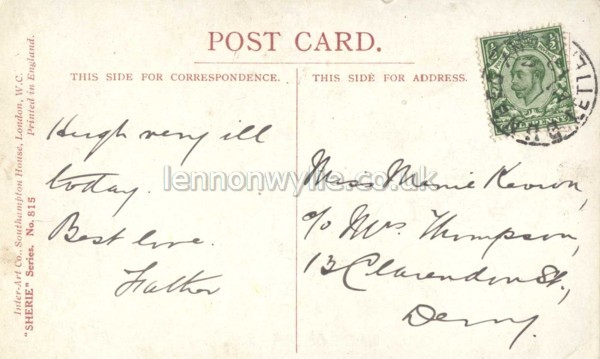 POST CARD.
THIS SIDE FOR CORRESPONDENCE.
THIS SIDE FOR ADDRESS.
Inter-Art Co., Southampton House, London, W.C.
Printed in England.
"SHERIE" Series. No. 815
Hugh very ill
today.
Best love.
Father
Miss Minnie Keown,
c/o Mrs. Thompson,
13 Clarendon St.,
Derry.
lennonwylie.co.uk